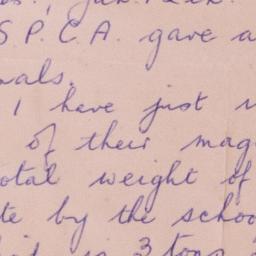 S.P.C.A. gave a
I have just
of their mag
otal weight of
te by the schoo
is 3 tons